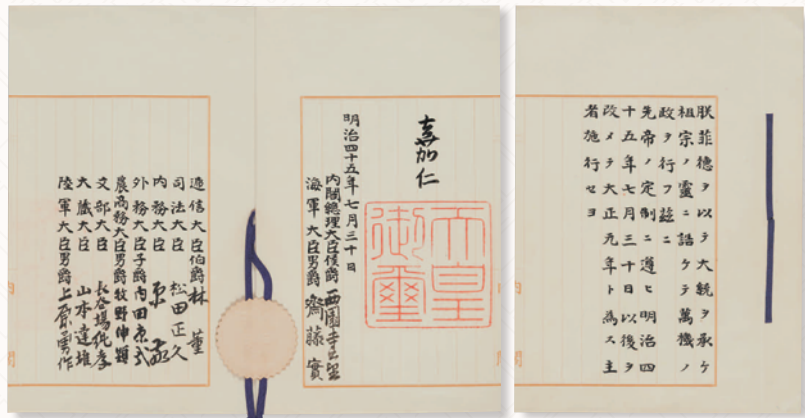 朕菲德ヲ以テ大統ヲ承ケ
祖宗ノ靈ニ誥ケテ萬機ノ
政ヲ行フ茲ニ
先帝ノ定制ニ遵ヒ明治四
十五年七月三十日以後ヲ
改メテ大正元年ト為ス主
者施行セヨ
嘉仁
天皇御璽
明治四十五年七月三十日
内閣總理大臣侯爵西園寺公望
海軍大臣男爵齋藤實
遞信大臣伯爵林董
司法大臣松田正久
内務大臣原敬
外務大臣子爵内田康哉
農商務大臣男爵牧野伸顯
文部大臣長谷場純孝
大藏大臣山本達雄
陸軍大臣男爵上原勇作